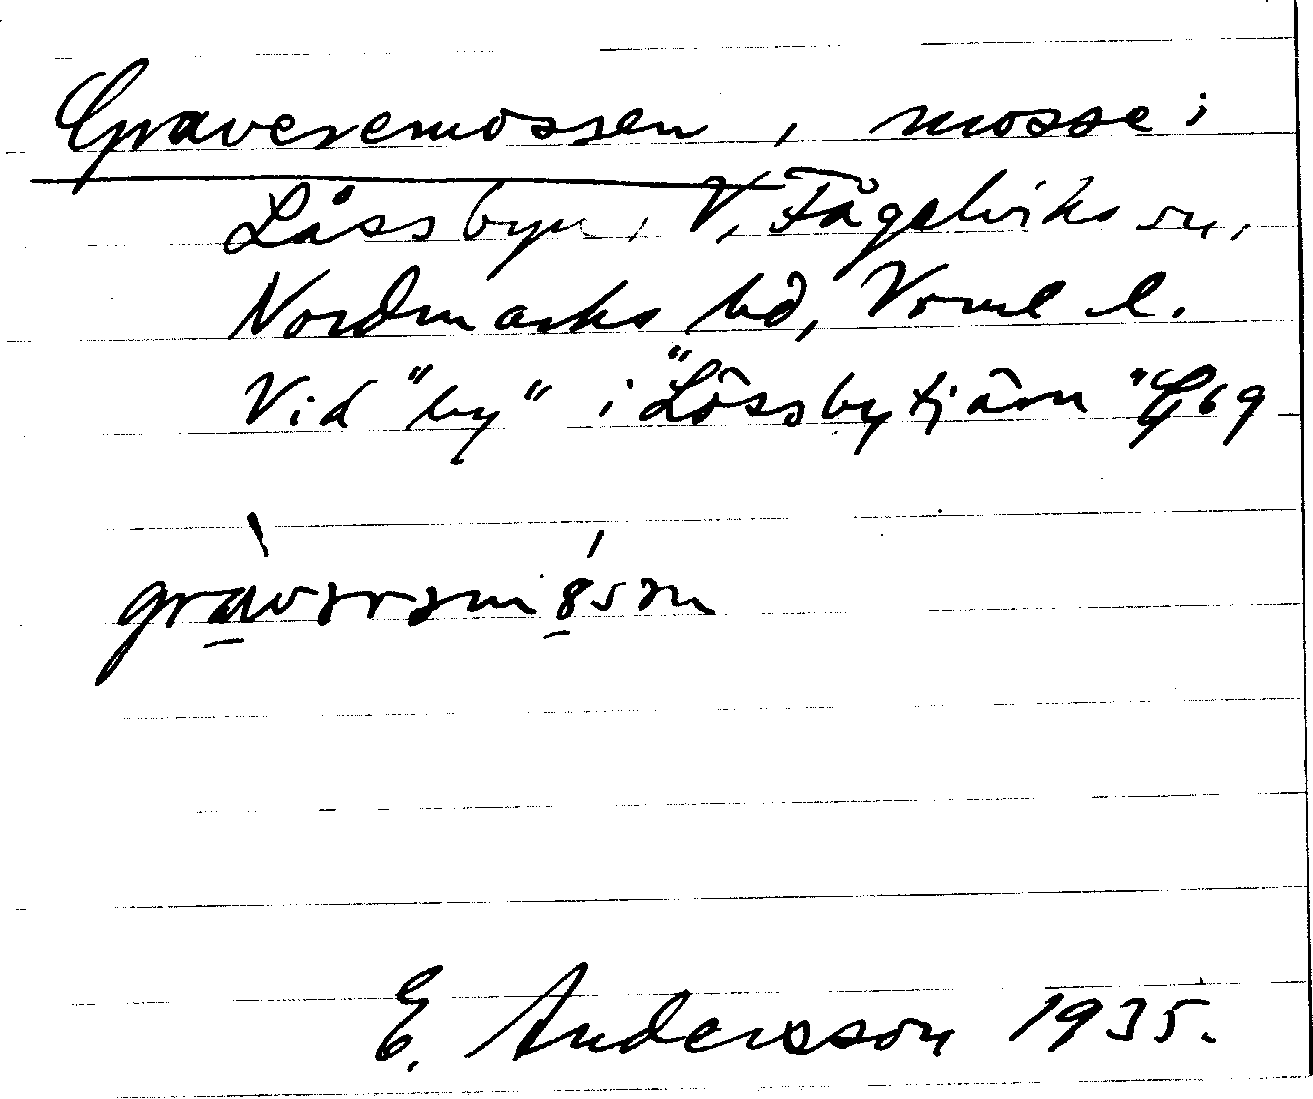 Graveremossen, mosse i
Låssbyn, V. Fågelviks sn,
Nordmarks hd, Vrml l.
Vid "by" i "Lössbytjärn" G 6 9
gràvərəmósən
E. Andersson 1935.